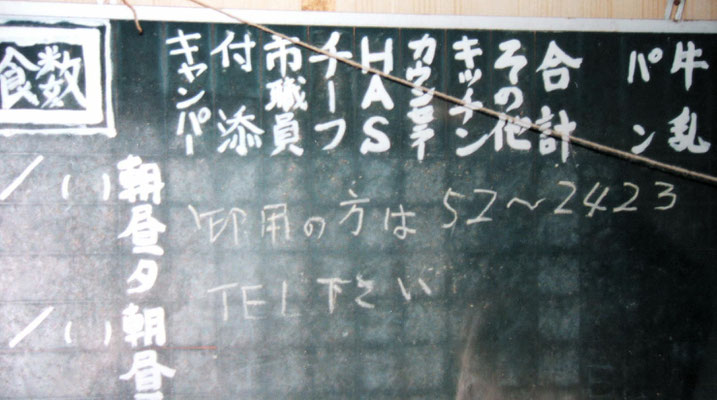 食数
キャンパー
付添
市職員
チーフ
HAS
カウンセラー
キッチン
その他
合計
パン
牛乱
/ ( ) 朝
昼
夕
/ ( ) 朝
昼
御用の方は 52〜2423
TEL下さい